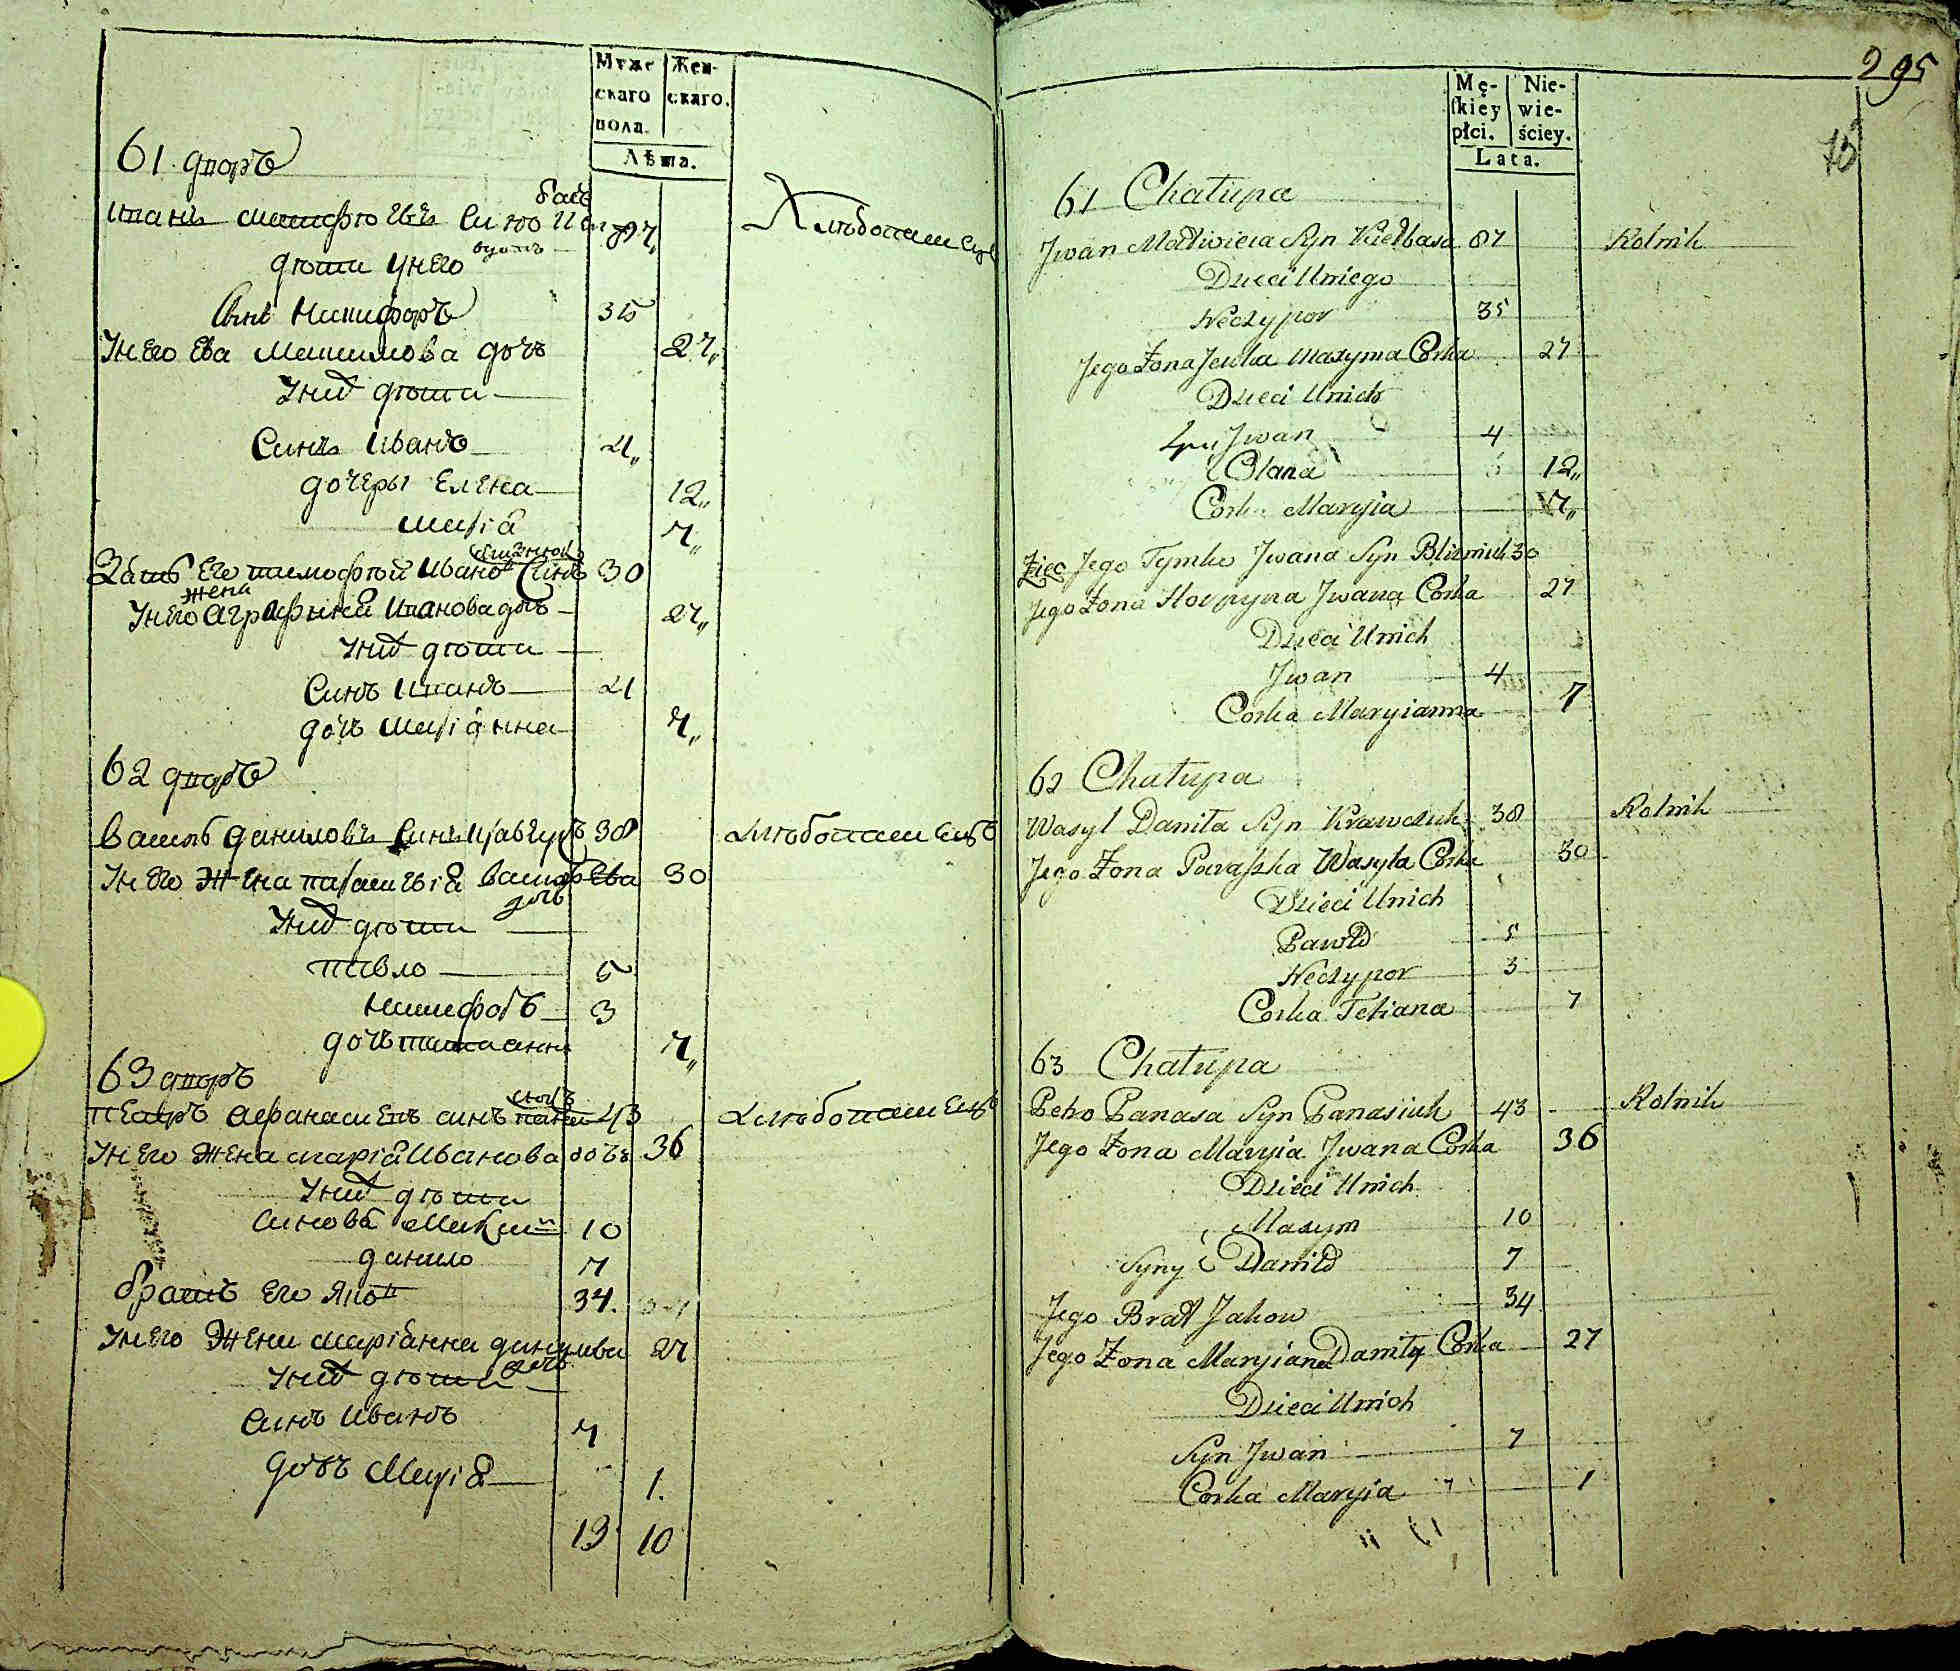 Муже
скаго
пола.
Жен-
скаго.
Лѣта.
61 дворъ
Иванъ
вдовъ
дѣти у него
Синъ Никифоръ 35
У него Ева Максимова дочь 27
У них дѣти
Синъ Иванъ 4
дочеры Елена 12
Марія 7
Зять его Тимофѣй Иванов Синъ 30
жена
У него Агрифина Иванова дочь 27
У них дѣти
Синъ Иванъ 4
дочь Маріанна 7
62 дворъ
Василь Даниловъ Синъ Кравчукъ 38 Хлѣбопашецъ
У него Жена Параскевія Васильева 30
дочь
У них дѣти
Павло 5
Никифоръ 3
дочь Татианна 7
63 дворъ
Петръ Афанасиевъ синъ 43 Хлѣбопашецъ
У него Жена Марія Иванова дочь 36
У них дѣти
Синовѣ Максим 10
Данило 7
братъ Его Яков 34.
У него Жена Маріанна Данилова 27
дочь
У них дѣти
Синъ Иванъ 7
дочь Марія 1.
13 10
295
Mę-
ſkiey
płci.
Nie-
wie-
ściey.
Lata.
61 Chałupa
Jwan Matwieia Syn Kiełbasa 87 Rolnik
Dzieci Uniego
Neczypor 35
Jego Zona Jewka Maxyma Corka 27
Dzieci Unich
Jwan 4
Olana 12
Corka Maryia 7
Zięc Jego Tymko Jwana Syn Blizniuk 30
Jego Zona Horpyna Jwana Corka 27
Dzieci Unich
Jwan 4
Corka Maryianna 7
62 Chałupa
Wasyl Daniła Syn Krawczuk 38 Rolnik
Jego Zona Paraſzka Wasyla Corka 30
Dzieci Unich
Pawło 5
Neczypor 3
Corka Tetiana 7
63 Chałupa
Petro Panasa Syn Panasiuk 43 Rolnik
Jego Zona Maryia Jwana Corka 36
Dzieci Unich
Maxym 10
Syny Daniło 7
Jego Brat Jakow 34
Jego Zona Maryiana Daniły Corka 27
Dzieci Unich
Syn Jwan 7
Corka Maryia 1